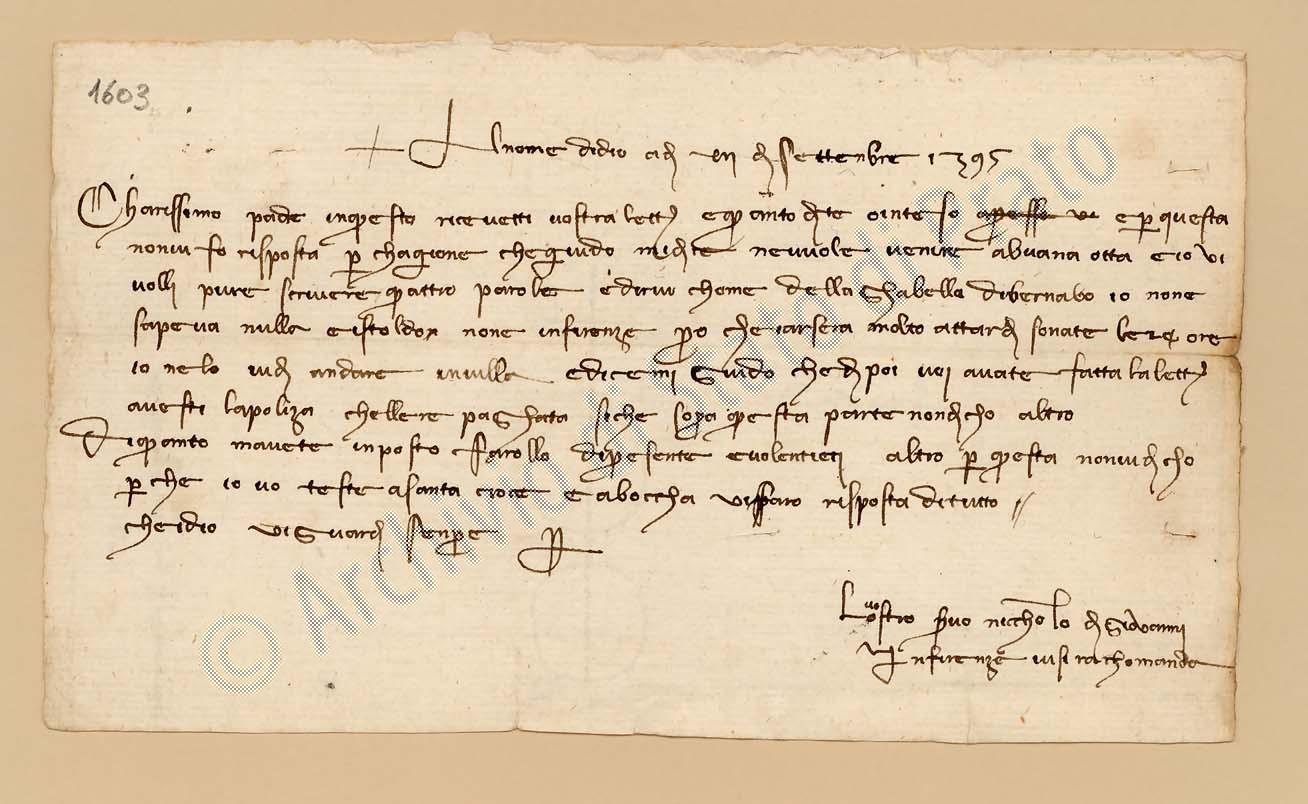 1603
+ Al nome di dio adj VII dj settenbre 1395
Charissimo padre inquesto ricevetti vostra letta equanto dite ointeso e per questa
nonvi fo risposta per chagione che guido nevvole venire abuana otta e io vi
volli pure scrivere quattro parole edirvi chome della ghabella dibernabo io none
sapeva nulla e istoldo none infirenze pero che iarsera molto attardj sonate le 24 ore
io nelo vidj andare invilla edicemi Guido chedipoi voi avate fatta la letta
avesti lapoliza chellere paghata siche sopra questa parte nondicho altro
Diquanto mavete inposto farollo dipresente evolentieri altro per questa nonvidicho
per che io vo teste asanta croce e aboccha vi faro risposta ditutto //
cheidio vi Guardj senpre
Lo vostro servo nicholo dj Giovanni
Infirenze visirachomanda
© Archivio di Stato di Prato